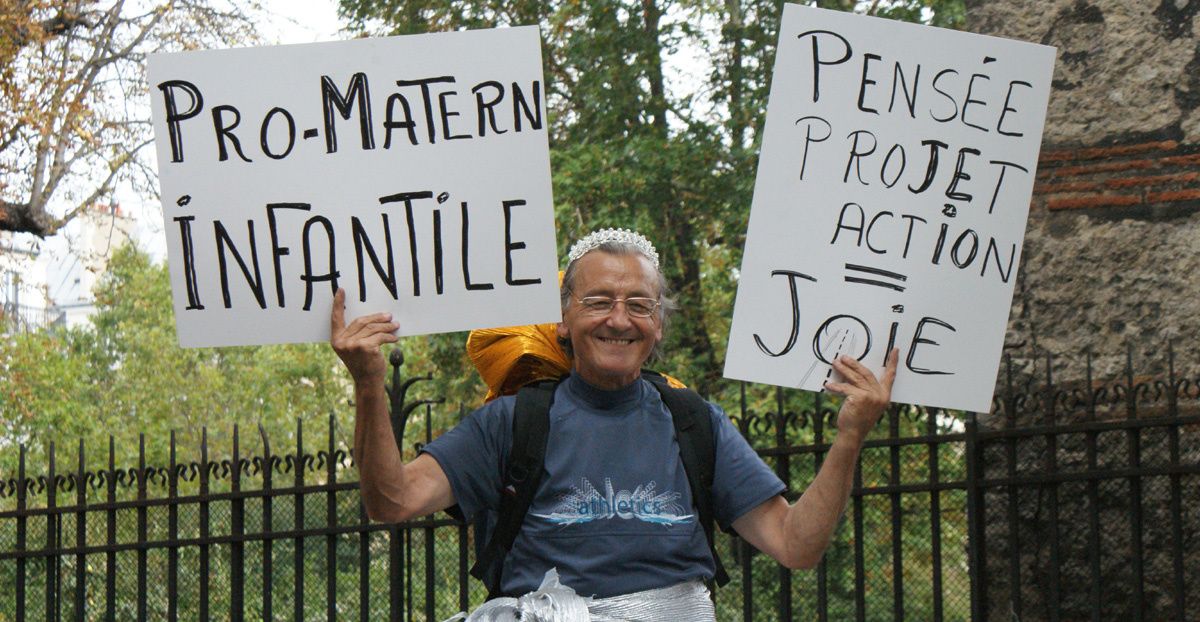 PRO-MATERN
iNFANTiLE
PENSÉE
PROJET
ACTiON
=
JOiE
athletics